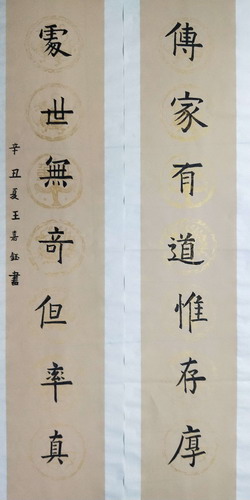 傳家有道惟存厚
處世無奇但率真
辛丑夏王美鈺書